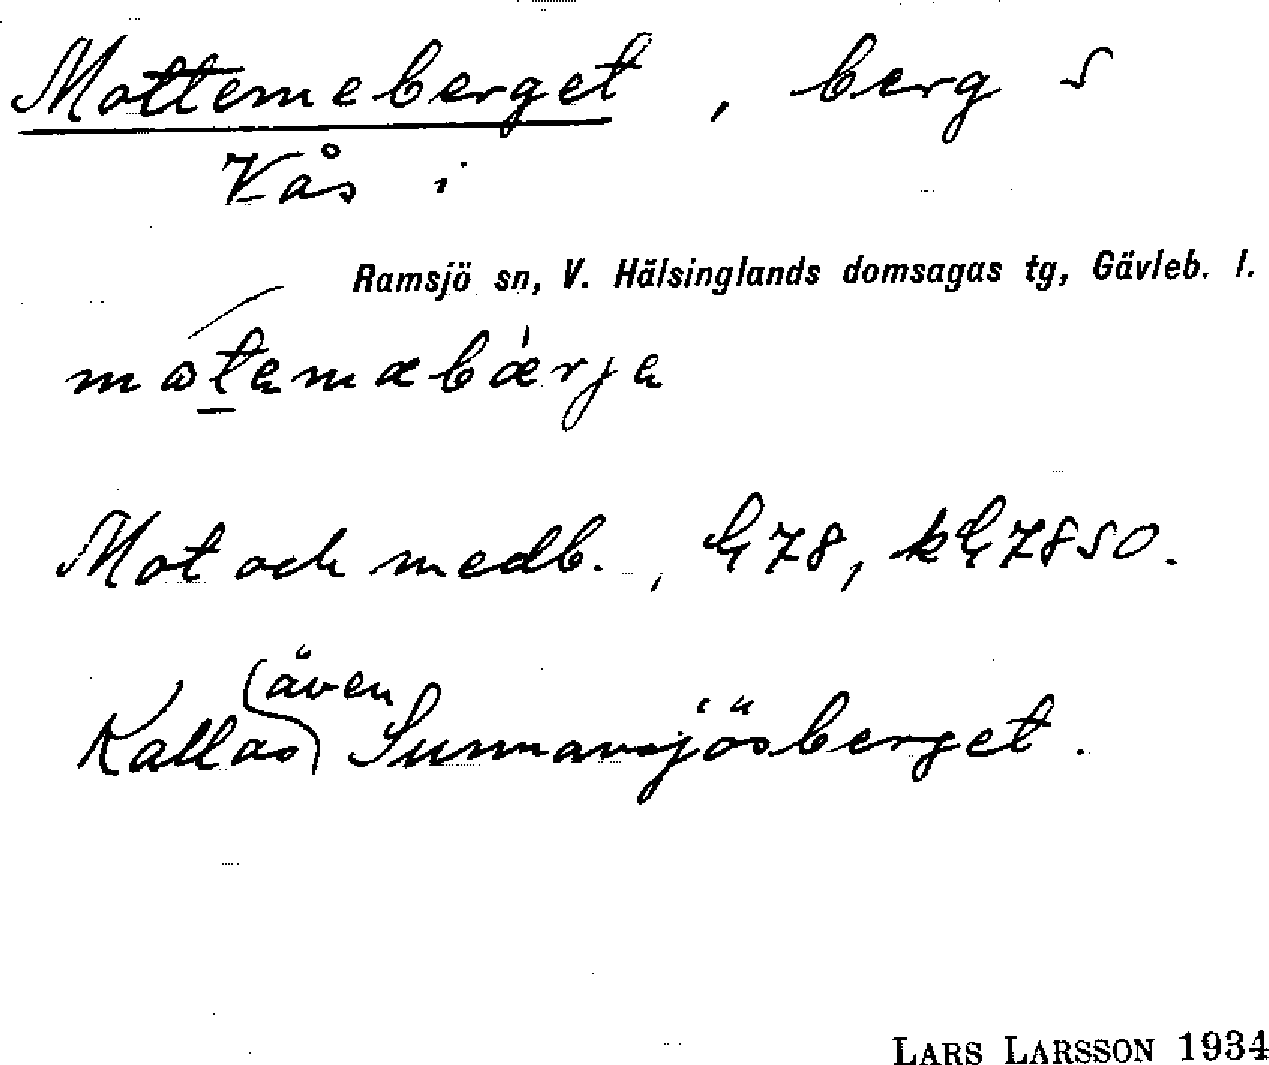 Mottemeberget, berg S
Kås i
Ramsjö sn, V. Hälsinglands domsagas tg, Gävleb. l.
Mot och medb., G78, kG7850.
Kallas även Sunnansjösberget.
LARS LARSSON 1934